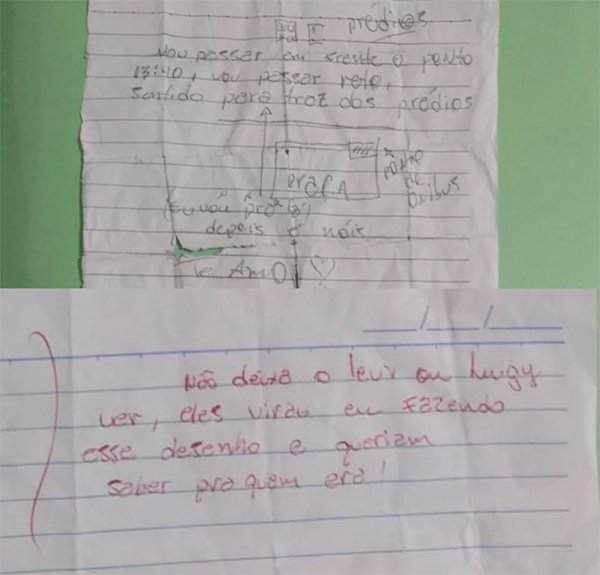 prédios
Vou passar em frente o ponto
13:40, vou passar reto,
sentido para traz dos prédios
praça
ponto
de
ônibus
(Eu vou pra lá)
depois é nóis
te AmO ♡
Não deixa o levi ou hugy
ver, eles virão eu fazendo
esse desenho e queriam
saber pra quem era!